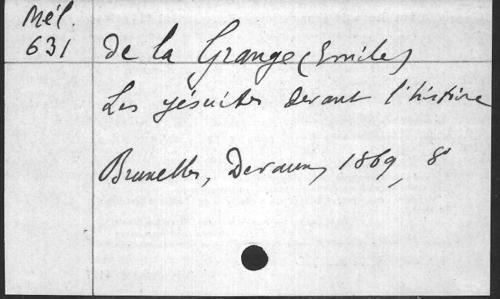 Mél.
631
de la Grange (Emile)
Les jésuites devant l'histoire
Bruxelles, Devaux, 1869, 8°